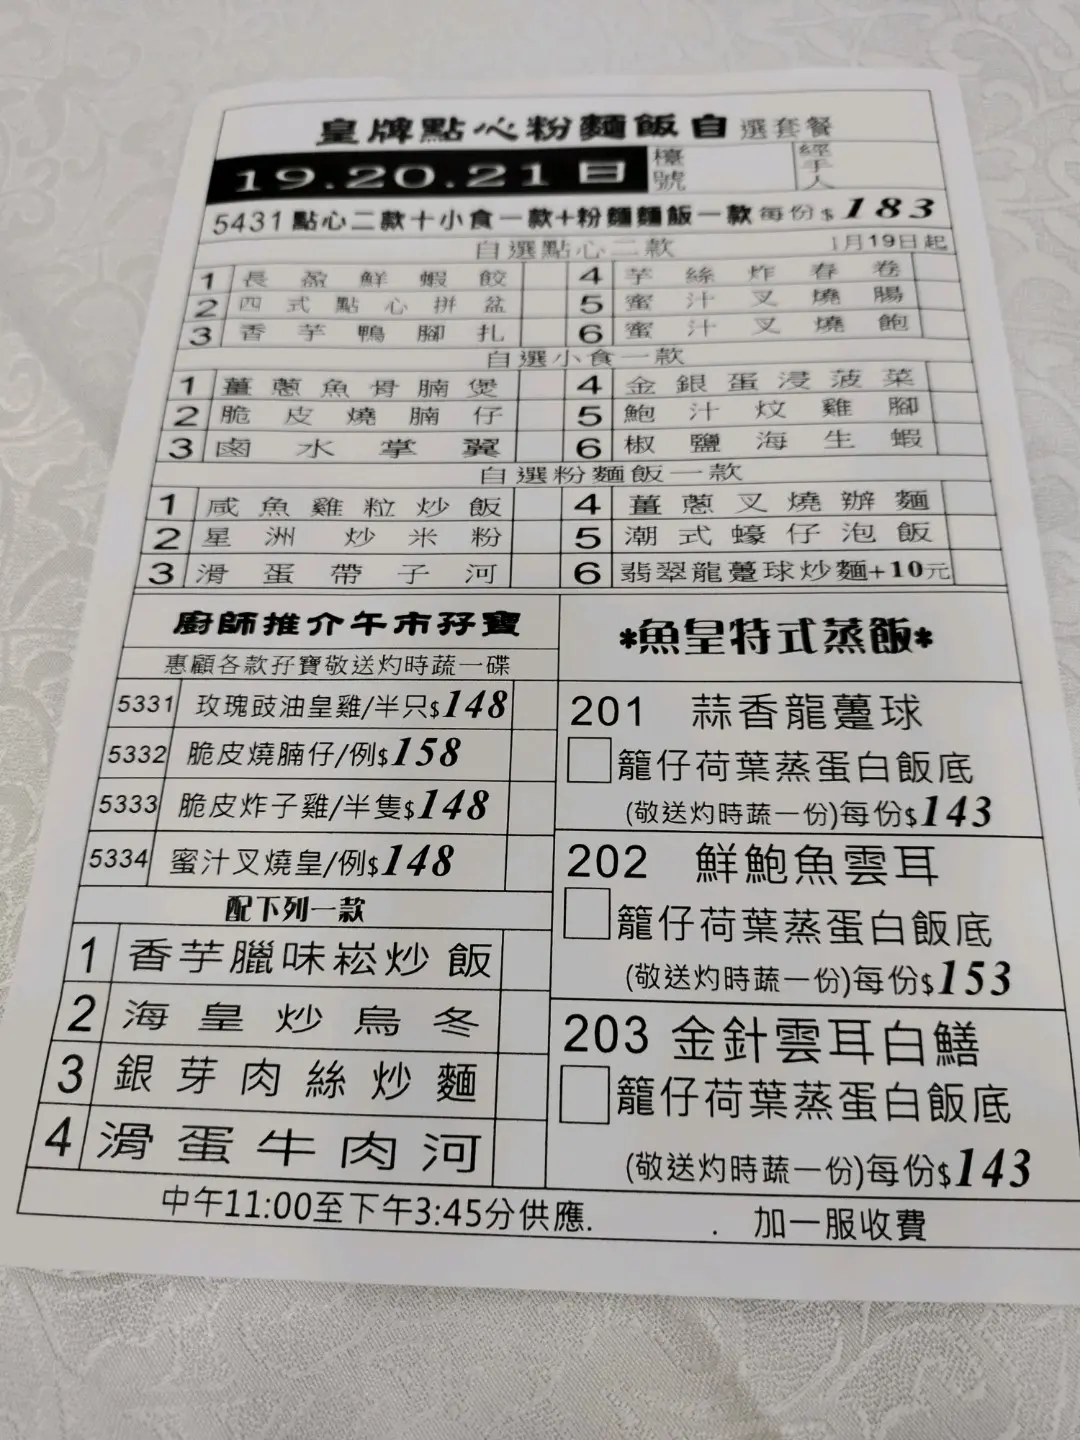 皇牌點心粉麵飯自選套餐
19.20.21日 檯號 經手人
5431 點心二款十小食一款+粉麵麵飯一款每份$183
自選點心二款 1月19日起
1 長盈鮮蝦餃 4 芋絲炸春卷
2 四式點心拼盆 5 蜜汁叉燒腸
3 香芋鴨腳扎 6 蜜汁叉燒飽
自選小食一款
1 薑蔥魚骨腩煲 4 金銀蛋浸菠菜
2 脆皮燒腩仔 5 鮑汁炆雞腳
3 鹵水掌翼 6 椒鹽海生蝦
自選粉麵飯一款
1 咸魚雞粒炒飯 4 薑蔥叉燒辦麵
2 星洲炒米粉 5 潮式蠔仔泡飯
3 滑蛋帶子河 6 翡翠龍躉球炒麵+10元
廚師推介午市孖寶
惠顧各款孖寶敬送灼時蔬一碟
5331 玫瑰豉油皇雞/半只$148
5332 脆皮燒腩仔/例$158
5333 脆皮炸子雞/半隻$148
5334 蜜汁叉燒皇/例$148
配下列一款
1 香芋臘味崧炒飯
2 海皇炒烏冬
3 銀芽肉絲炒麵
4 滑蛋牛肉河
*魚皇特式蒸飯*
201 蒜香龍躉球
籠仔荷葉蒸蛋白飯底
(敬送灼時蔬一份)每份$143
202 鮮鮑魚雲耳
籠仔荷葉蒸蛋白飯底
(敬送灼時蔬一份)每份$153
203 金針雲耳白鱔
籠仔荷葉蒸蛋白飯底
(敬送灼時蔬一份)每份$143
中午11:00至下午3:45分供應. . 加一服收費